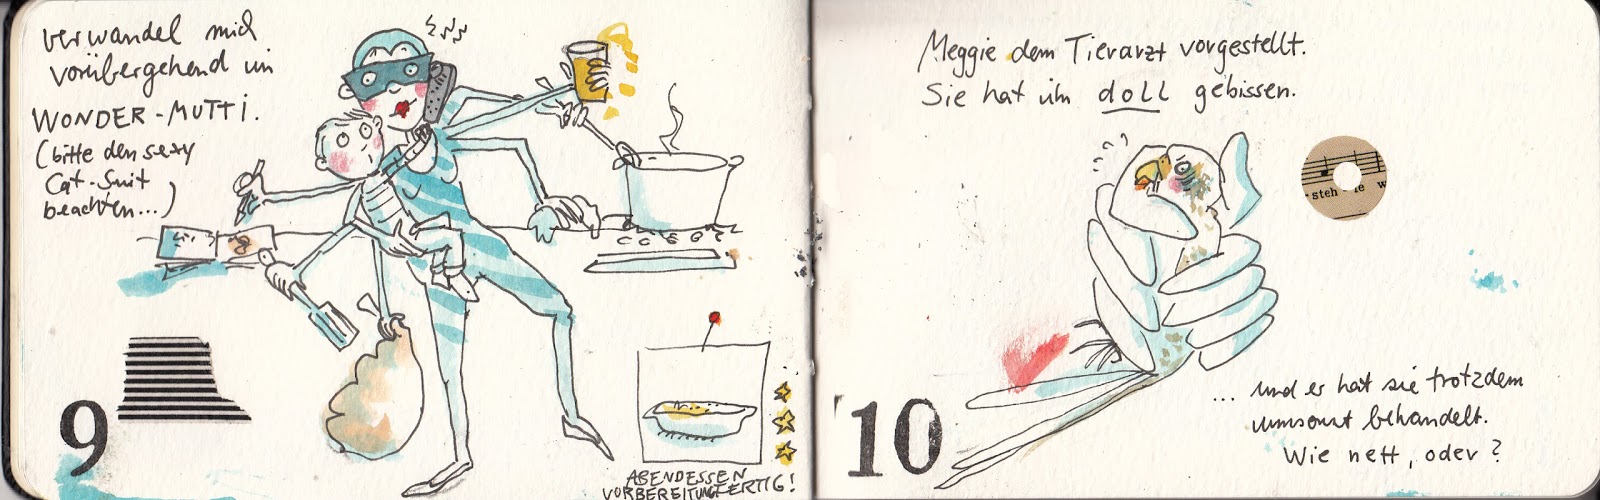 verwandel mich
vorübergehend in
WONDER-MUTTI.
(bitte den sexy
Cat-Suit
beachten...)
9
ABENDESSEN
VORBEREITUNG FERTIG!
Meggie dem Tierarzt vorgestellt.
Sie hat ihn doll gebissen.
steh
w
10
... und er hat sie trotzdem
umsonst behandelt.
Wie nett, oder?